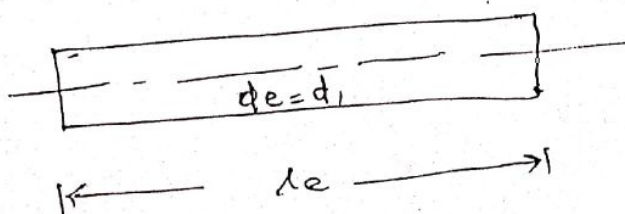 de = d₁
le